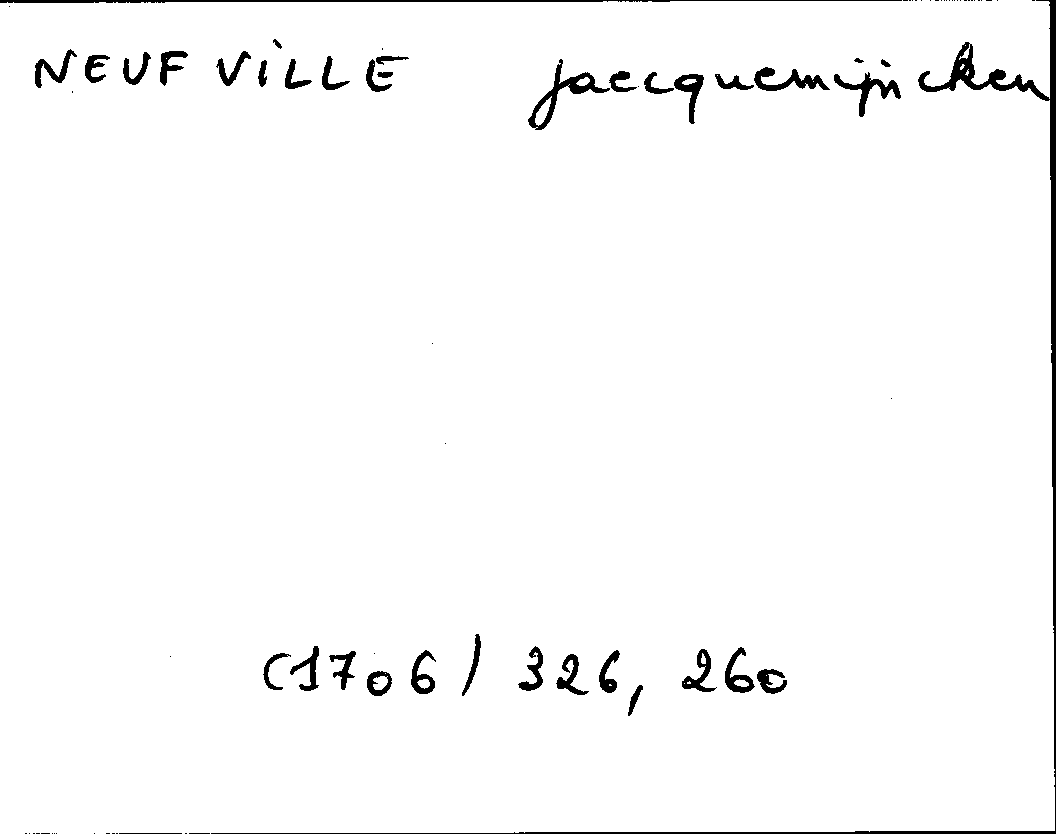 NEUFVILLE jaecquemijncken
(1706) 326, 260